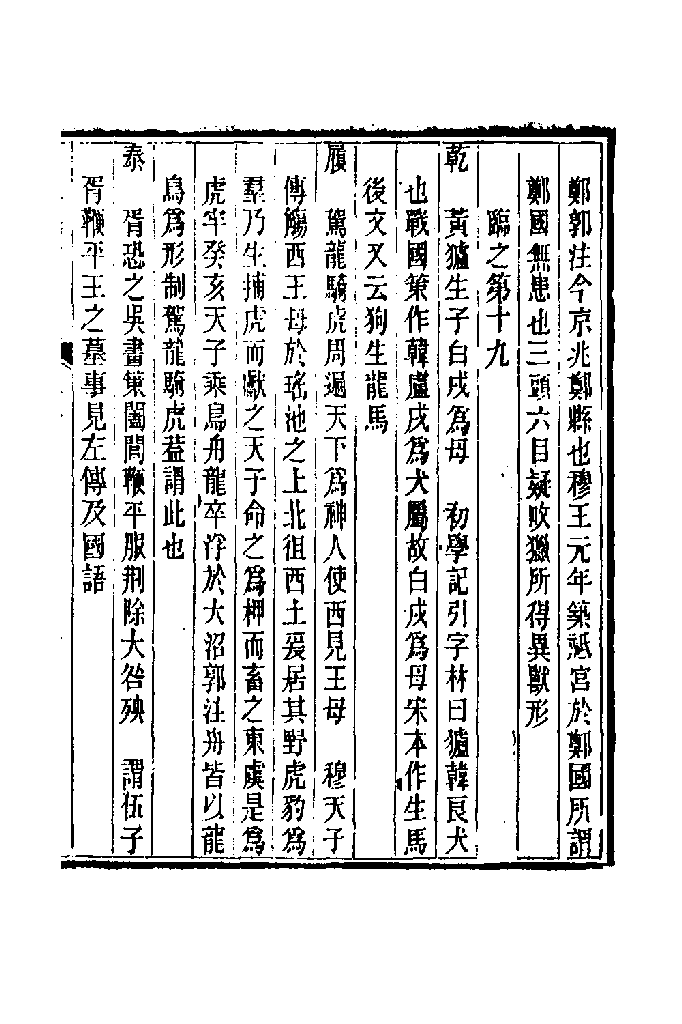 鄭郭注今京兆鄭縣也穆王元年築祗宮於鄭國所謂
鄭國無患也三頭六目疑畋獵所得異獸形
臨之第十九
乾　黃獹生子白戌爲母　初學記引字林曰獹韓良犬
也戰國策作韓盧戌爲犬屬故白戌爲母宋本作生馬
後文又云狗生龍馬
履　駕龍騎虎周遍天下爲神人使西見王母　穆天子
傳觴西王母於瑤池之上北徂西土爰居其野虎豹爲
羣乃生捕虎而獻之天子命之爲柙而畜之東虞是爲
虎牢癸亥天子乘鳥舟龍卒浮於大沼郭注舟皆以龍
鳥爲形制駕龍騎虎葢謂此也
泰　胥恐之吳晝策闔閭鞭平服荆除大咎殃　謂伍子
胥鞭平王之墓事見左傳及國語